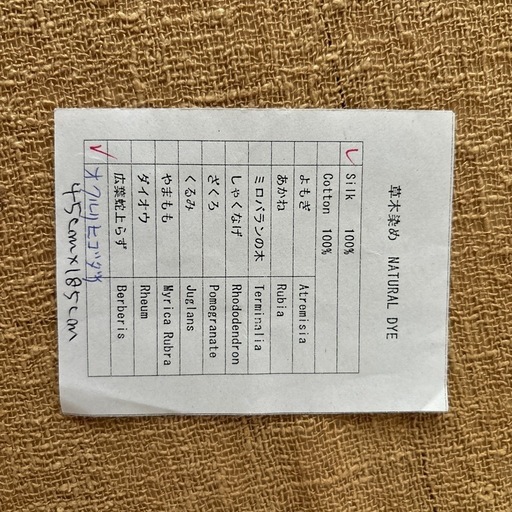 草木染め NATURAL DYE
✓ Silk 100%
Cotton 100%
よもぎ Atremisia
あかね Rubia
ミロバランの木 Terminalia
しゃくなげ Rhododendron
ざくろ Pomegranate
くるみ Juglans
やまもも Myrica Rubra
ダイオウ Rheum
✓ 広葉蛇上らず Berberis
45cm×185cm